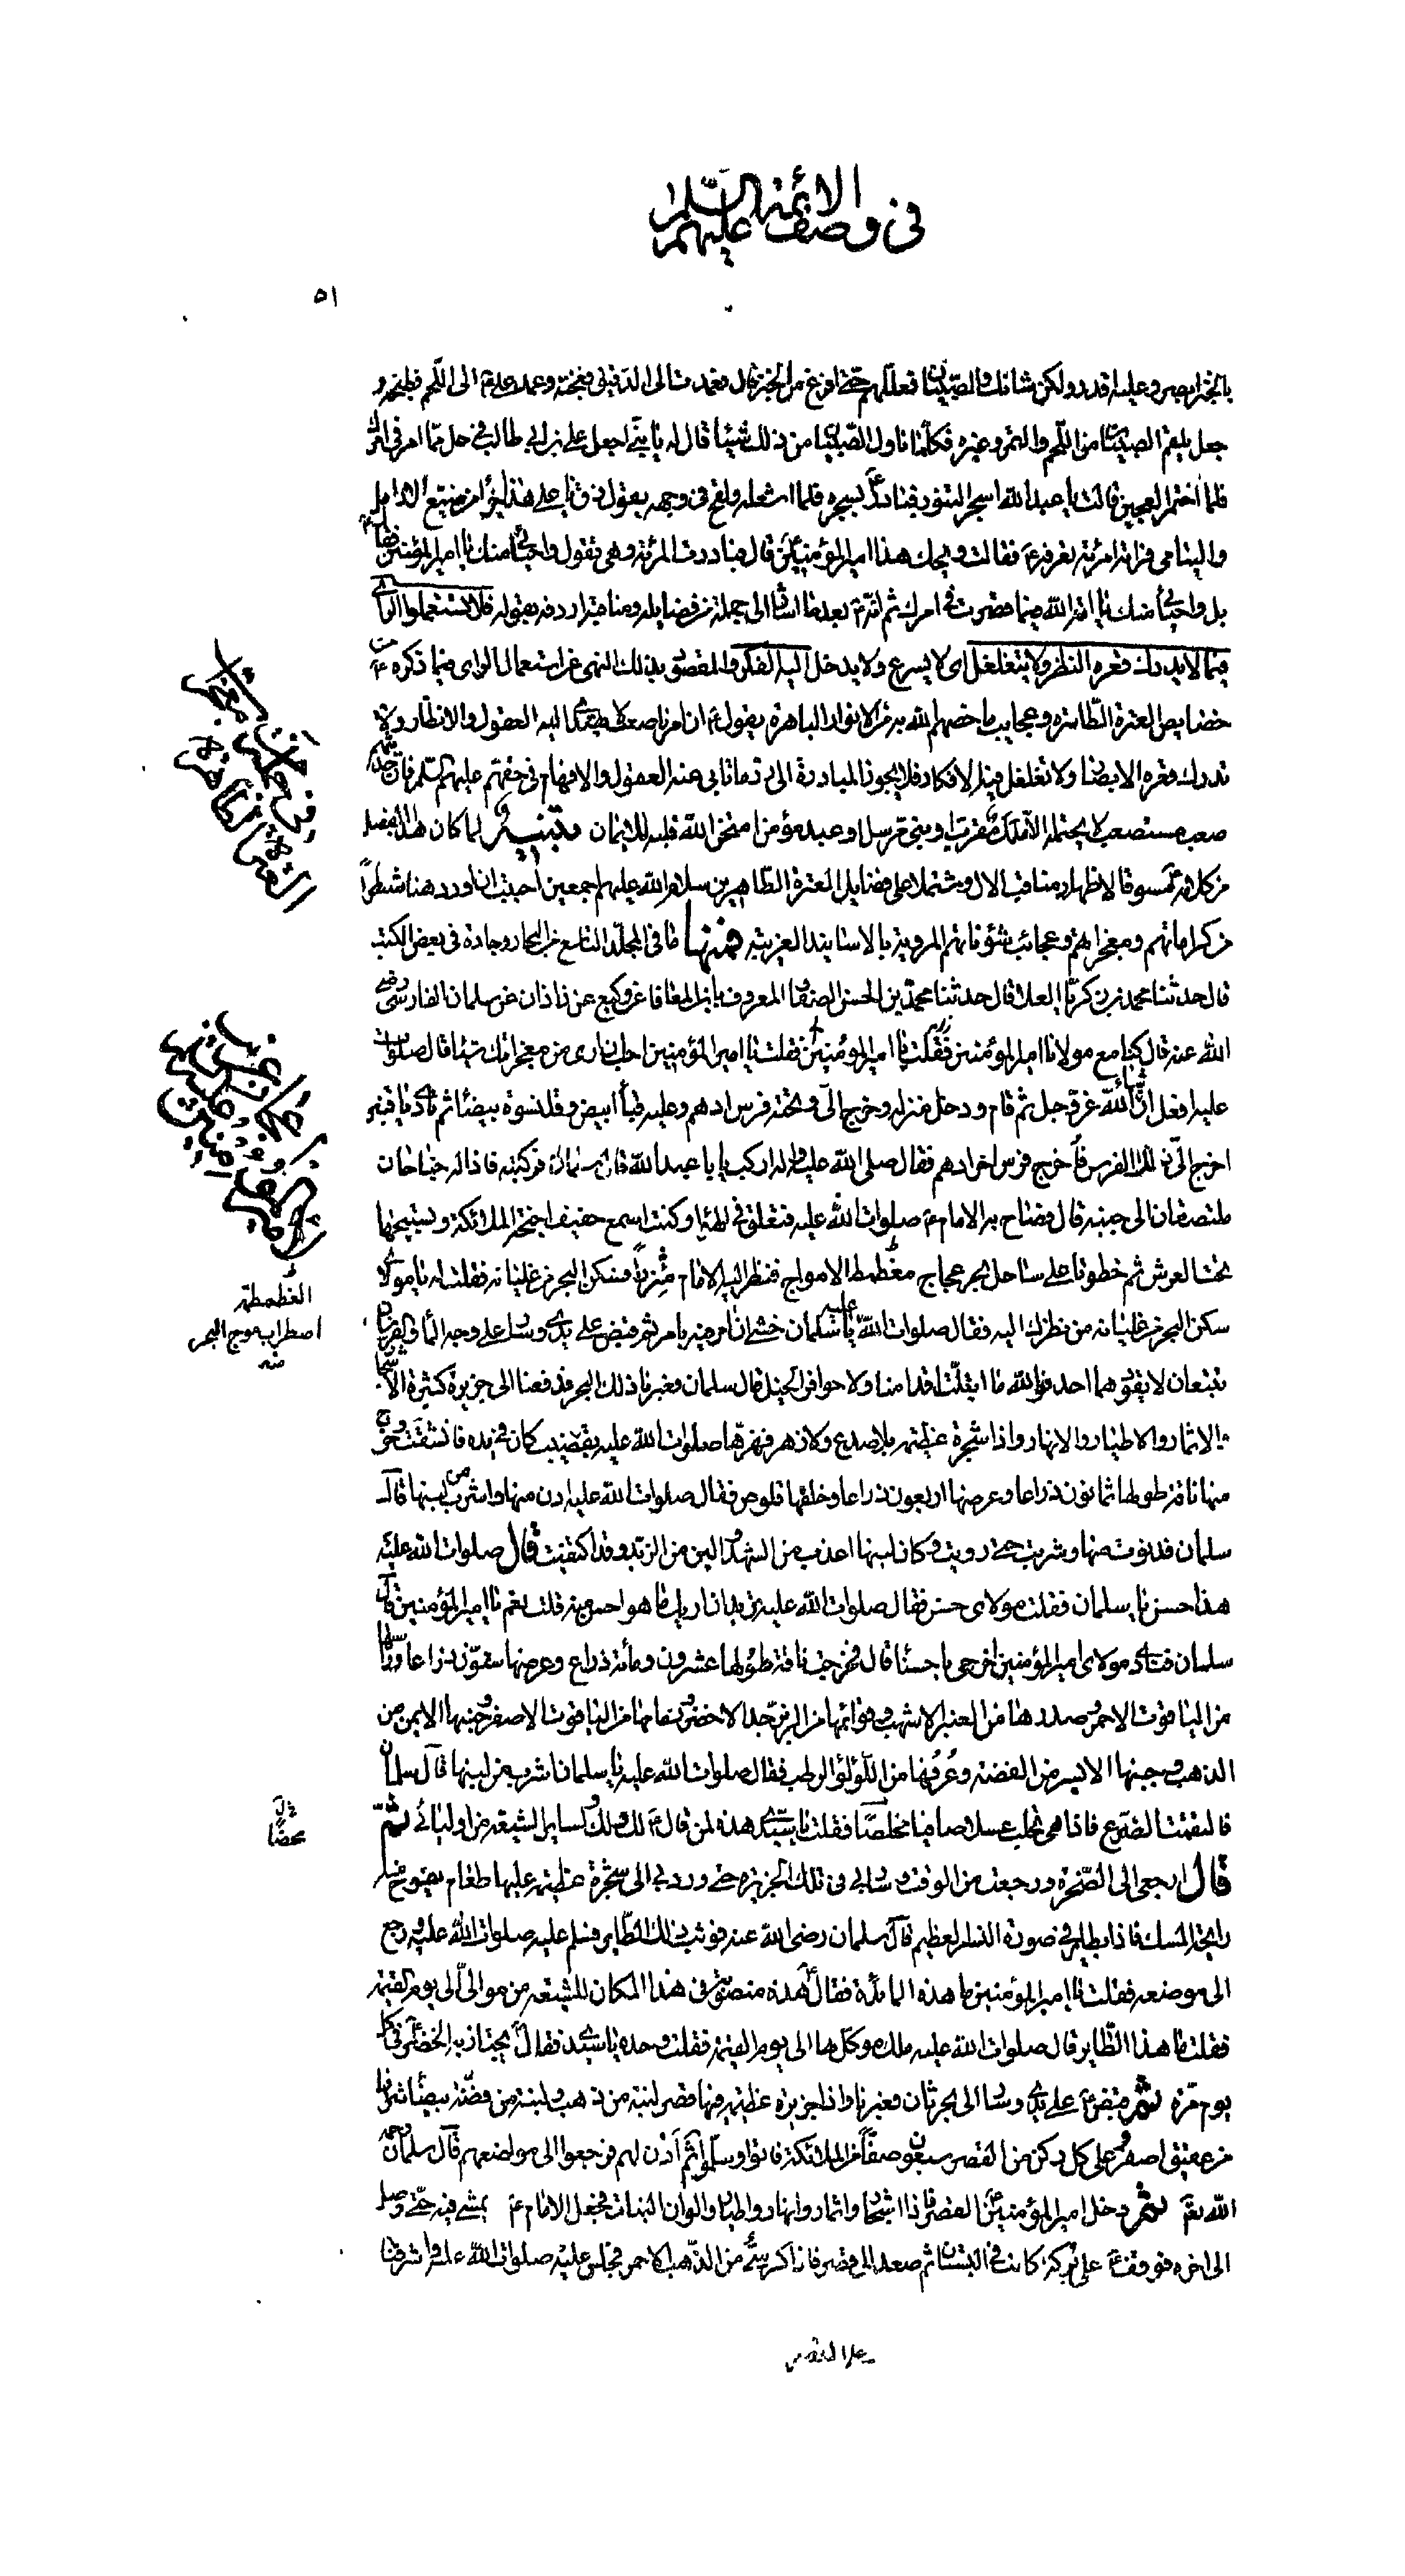 في وصف الائمة عليهم السلام
٥١
بالخبز ابصر وعليه اقدر ولكن شانك والصبيان فعللهم حتى افرغ من الخبز قال فعمدت الى الدقيق فعجنته وعمد علي ع الى اللحم فطبخه و
جعل يلقم الصبيان من اللحم والتمر وغيره فكلما ناول الصبيان من ذلك شيئا قال له يا بني اجعل علي بن ابي طالب في حل مما امر في امرك
فلما اختمر العجين قالت يا عبد الله اسجر التنور فبادر ع بسجره فلما اشعله ولفح في وجهه يقول ذق يا علي هذا جزاء من ضيع الارامل
واليتامى فراته امرئة تعرفه ع فقالت ويحك هذا امير المؤمنين ع قال فبادرت المرئة وهي تقول واحيائي منك يا امير المؤمنين فقال ع
بل واحيائي منك يا امة الله فيما قصرت في امرك ثم انه ع بعد ما اشار الى جملة من فضايله ومناقبه اردفه بقوله فلا تستعملوا الراي
فيما لا يدرك قعره النظر ولا يتغلغل اي لا يسرع ولا يدخل اليه الفكر والمقصود بذلك النهي عن استعمال الراي فيما ذكره ع من
خصايص العترة الطاهرة وعجايب ما خصهم الله به من الانوار الباهرة يقول ع ان امرنا صعب لا يهتدي اليه العقول والانظار ولا
تدرك قعره الابصار ولا تغلغل فيه الافكار فلا يجوز المبادرة الى رد ما تابى عنه العقول والافهام في حقهم عليهم السلم فان حديثهم
صعب مستصعب لا يحتمله الا ملك مقرب او نبي مرسل او عبد مؤمن امتحن الله قلبه للايمان تنبيه لما كان هذا الفصل
من كلامه ع مسوقا لاظهار مناقب الال ومشتملا على فضايل العترة الطاهرين سلام الله عليهم اجمعين احببت ان اورد هنا شطرا
من كراماتهم ومعجزاتهم وعجائب شؤناتهم المروية بالاسانيد الغريبة فمنها ما في المجلد التاسع من البحار وجادة في بعض الكتب
قال حدثنا محمد بن زكريا العلا قال حدثنا محمد بن الحسن الصفار المعروف بابن المعافا عن وكيع عن زاذان عن سلمان الفارسي رضي
الله عنه قال كنا مع مولانا امير المؤمنين فقلت يا امير المؤمنين احب ان ارى من معجزاتك شيئا قال صلوات الله
عليه افعل انشاء الله عز وجل ثم قام ودخل منزله وخرج الي وتحته فرس ادهم وعليه قباء ابيض وقلنسوة بيضاء ثم نادى يا قنبر
اخرج الي ذلك الفرس فاخرج فرس اخر ادهم فقال صلى الله عليه واله اركب يا ابا عبد الله قال سلمان فركبته فاذا له جناحان
ملتصقان الى جنبه قال فصاح به الامام ع صلوات الله عليه فتعلق في الهواء وكنت اسمع حفيف اجنحة الملائكة وتسبيحها
تحت العرش ثم خطونا على ساحل بحر عجاج مغطمط الامواج فنظر اليه الامام شزرا فسكن البحر من غليانه فقلت له يا مولاي
سكن البحر من غليانه من نظرك اليه فقال صلوات الله عليه يا سلمان خشي ان امر فيه بامر ثم قبض على يدي وسار على وجه الماء والفرسان
تتبعان لا يقودهما احد فوالله ما ابتلت اقدامنا ولا حوافر الخيل قال سلمان فعبرنا ذلك البحر فدفعنا الى جزيرة كثيرة الاشجار
والاثمار والاطيار والانهار واذا شجرة عظيمة بلا صدع ولا زهر فهزها صلوات الله عليه بقضيب كان في يده فانشقت وخرج
منها ناقة طولها ثمانون ذراعا وعرضها اربعون ذراعا وخلفها قلوص فقال صلوات الله عليه ادن منها واشرب من لبنها قال
سلمان فدنوت منها وشربت حتى رويت وكان لبنها اعذب من الشهد والين من الزبد وقد اكتفيت قال صلوات الله عليه
هذا حسن يا سلمان فقلت مولاي حسن فقال صلوات الله عليه تريد ان اريك ما هو احسن منه قلت نعم يا امير المؤمنين قال
سلمان فنادى مولاي امير المؤمنين اخرجي يا حسناء قال فخرجت ناقة طولها عشرون ومأة ذراع وعرضها ستون ذراعا وراسها
من الياقوت الاحمر وصدرها من العنبر الاشهب وقوائمها من الزبرجد الاخضر وزمامها من الياقوت الاصفر وجنبها الايمن من
الذهب وجنبها الايسر من الفضة وعرفها من اللؤلؤ الرطب فقال صلوات الله عليه يا سلمان اشرب من لبنها قال سلمان
فالتقمت الضرع فاذا هي تحلب عسلا صافيا مخلصا فقلت يا سيدي هذه لمن قال ع لك ولسائر الشيعة من اوليائي ثم
قال ارجعي الى الصخرة ورجعت من الوقت وسار بي في تلك الجزيرة حتى ورد بي الى شجرة عظيمة عليها طعام يفوح منه
رايحة المسك فاذا بطاير في صورة النسر العظيم قال سلمان رضي الله عنه فوثب ذلك الطاير فسلم عليه صلوات الله عليه ورجع
الى موضعه فقلت يا امير المؤمنين ما هذه المائدة فقال هذه منصوبة في هذا المكان للشيعة من موالي الى يوم القيمة
فقلت ما هذا الطاير قال صلوات الله عليه ملك موكل بها الى يوم القيمة فقلت وحده يا سيدي فقال يجتاز به الخضر ع في كل
يوم مرة ثم قبض ع على يدي وسار الى بحر ثان فعبرنا واذا جزيرة عظيمة فيها قصر لبنة من ذهب ولبنة من فضة بيضاء شرفها
من عقيق اصفر وعلى كل ركن من القصر سبعون صفا من الملائكة فاتوا وسلموا ثم اذن لهم فرجعوا الى مواضعهم قال سلمان رحمه
الله تع ثم دخل امير المؤمنين ع القصر فاذا اشجار واثمار وانهار واطيار والوان النبات فجعل الامام ع يمشي فيه حتى وصل
الى اخره فوقف ع على بركة كانت في البستان ثم صعد الى قصر فاذا كرسي من الذهب الاحمر فجلس عليه صلوات الله عليه واشرفنا
الغطمطة
اضطراب موج البحر
منه
محضا
على القصر